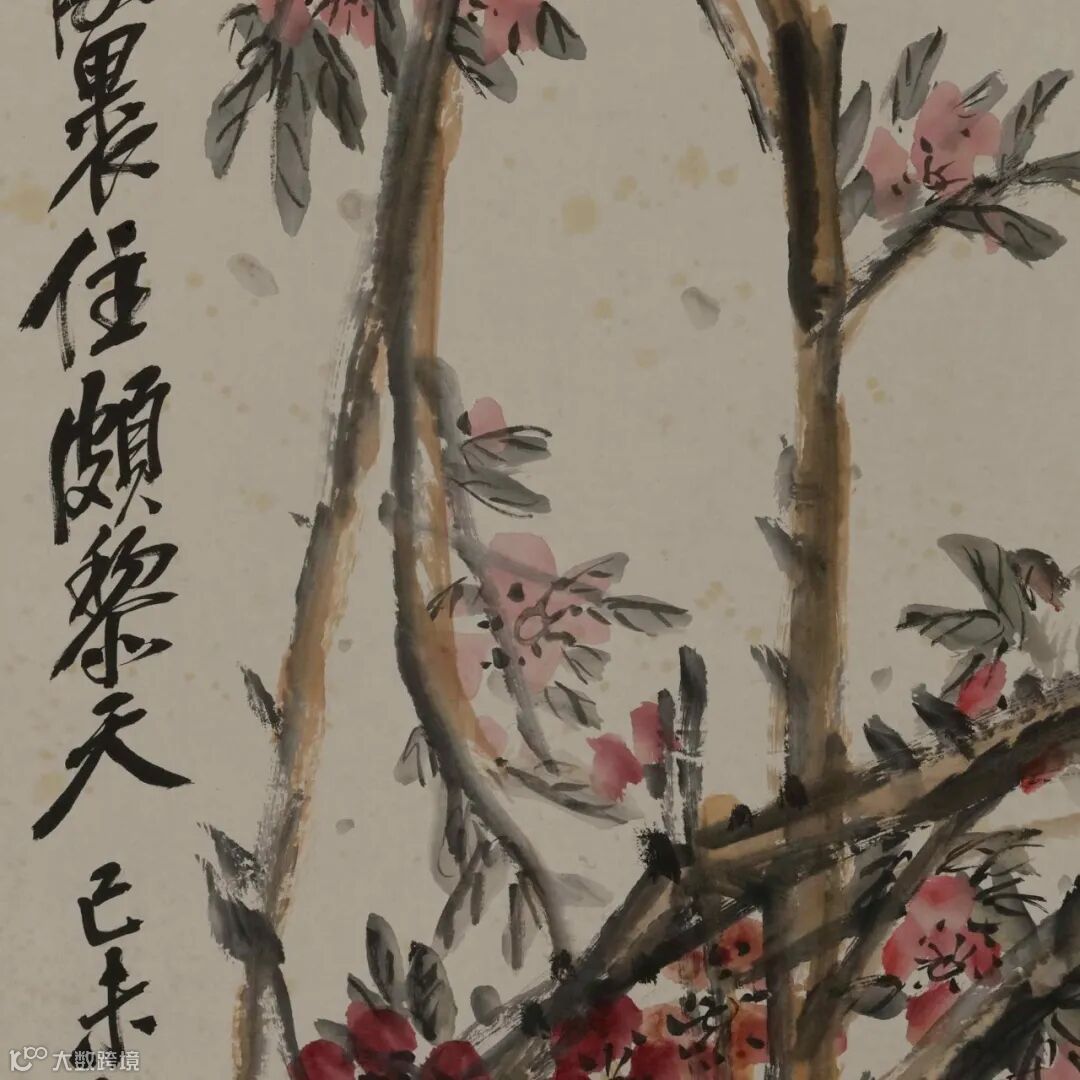 裹住頗黎天
己未
大数跨境